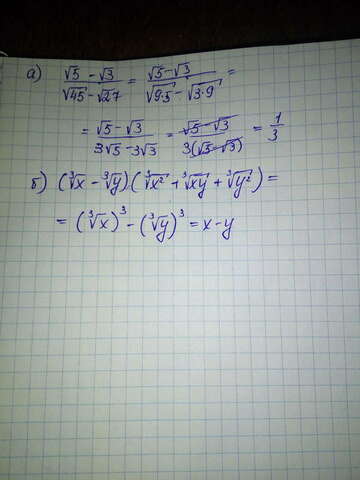 а) (√5 − √3)/(√45 − √27) = (√5 − √3)/(√9·5 − √3·9) =
= (√5 − √3)/(3√5 − 3√3) = (√5 − √3)/(3(√5 − √3)) = 1/3
б) (∛x − ∛y)(∛x² + ∛xy + ∛y²) =
= (∛x)³ − (∛y)³ = x − y